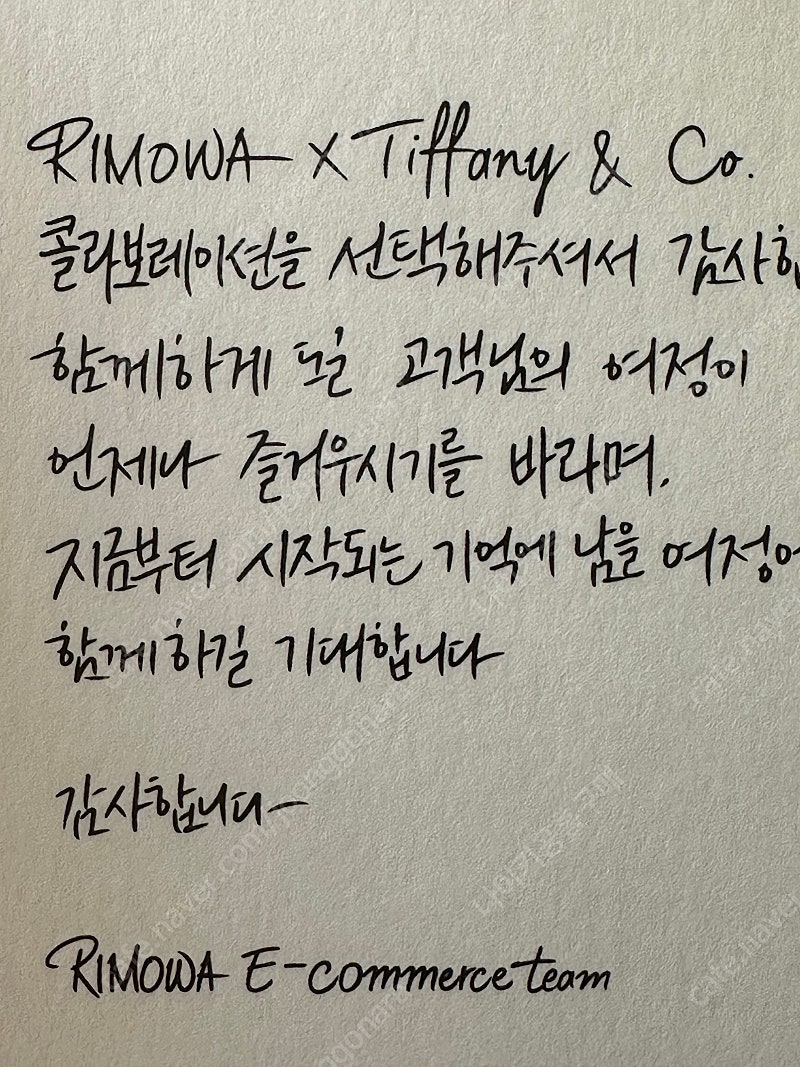 RIMOWA X Tiffany & Co.
콜라보레이션을 선택해주셔서 감사합
함께하게 될 고객님의 여정이
언제나 즐거우시기를 바라며,
지금부터 시작되는 기억에 남을 여정에
함께하길 기대합니다
감사합니다
RIMOWA E-commerce team